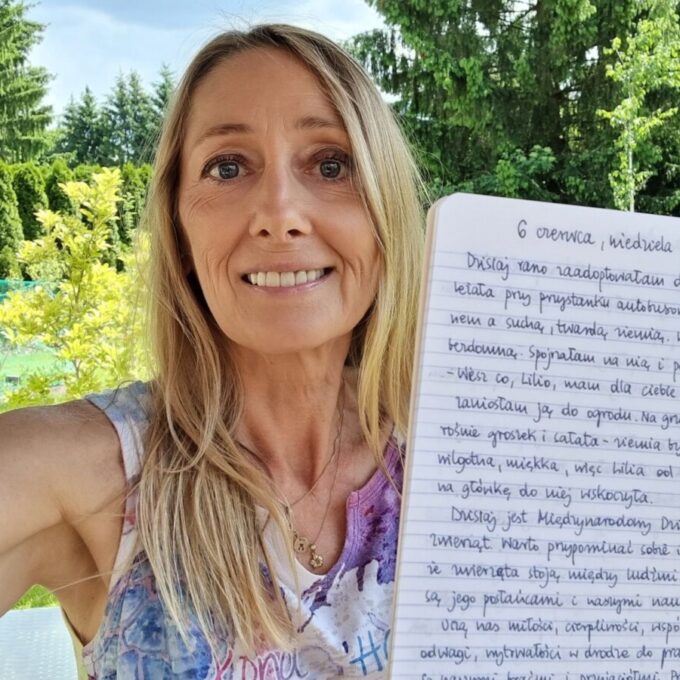 6 czerwca, niedziela
Dzisiaj rano zaadoptowałam d
leżała przy przystanku autobusow
nem a suchą, twardą ziemią.
bezdomną. Spojrzałam na nią i p
- Wesz co, Lilio, mam dla ciebie
zaniosłam ją do ogrodu. Na grz
rośnie groszek i sałata - ziemia by
wilgotna, miękka, więc Lilia od
na główkę do niej wskoczyła.
Dzisiaj jest Międzynarodowy Dzi
Zwierząt. Warto przypominać sobie i
że zwierzęta stoją między ludźmi
są jego posłańcami i naszymi nau
Uczą nas miłości, cierpliwości, wspó
odwagi, wytrwałości w drodze do pra
są naszymi braćmi i przyjaciółmi.